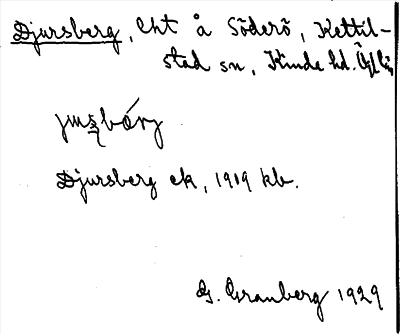 Djursberg, lht å Söderö, Kettil-
stad sn, Kinda hd. Ög l.
Djursberg ek, 1919 kb.
G. Granberg 1929